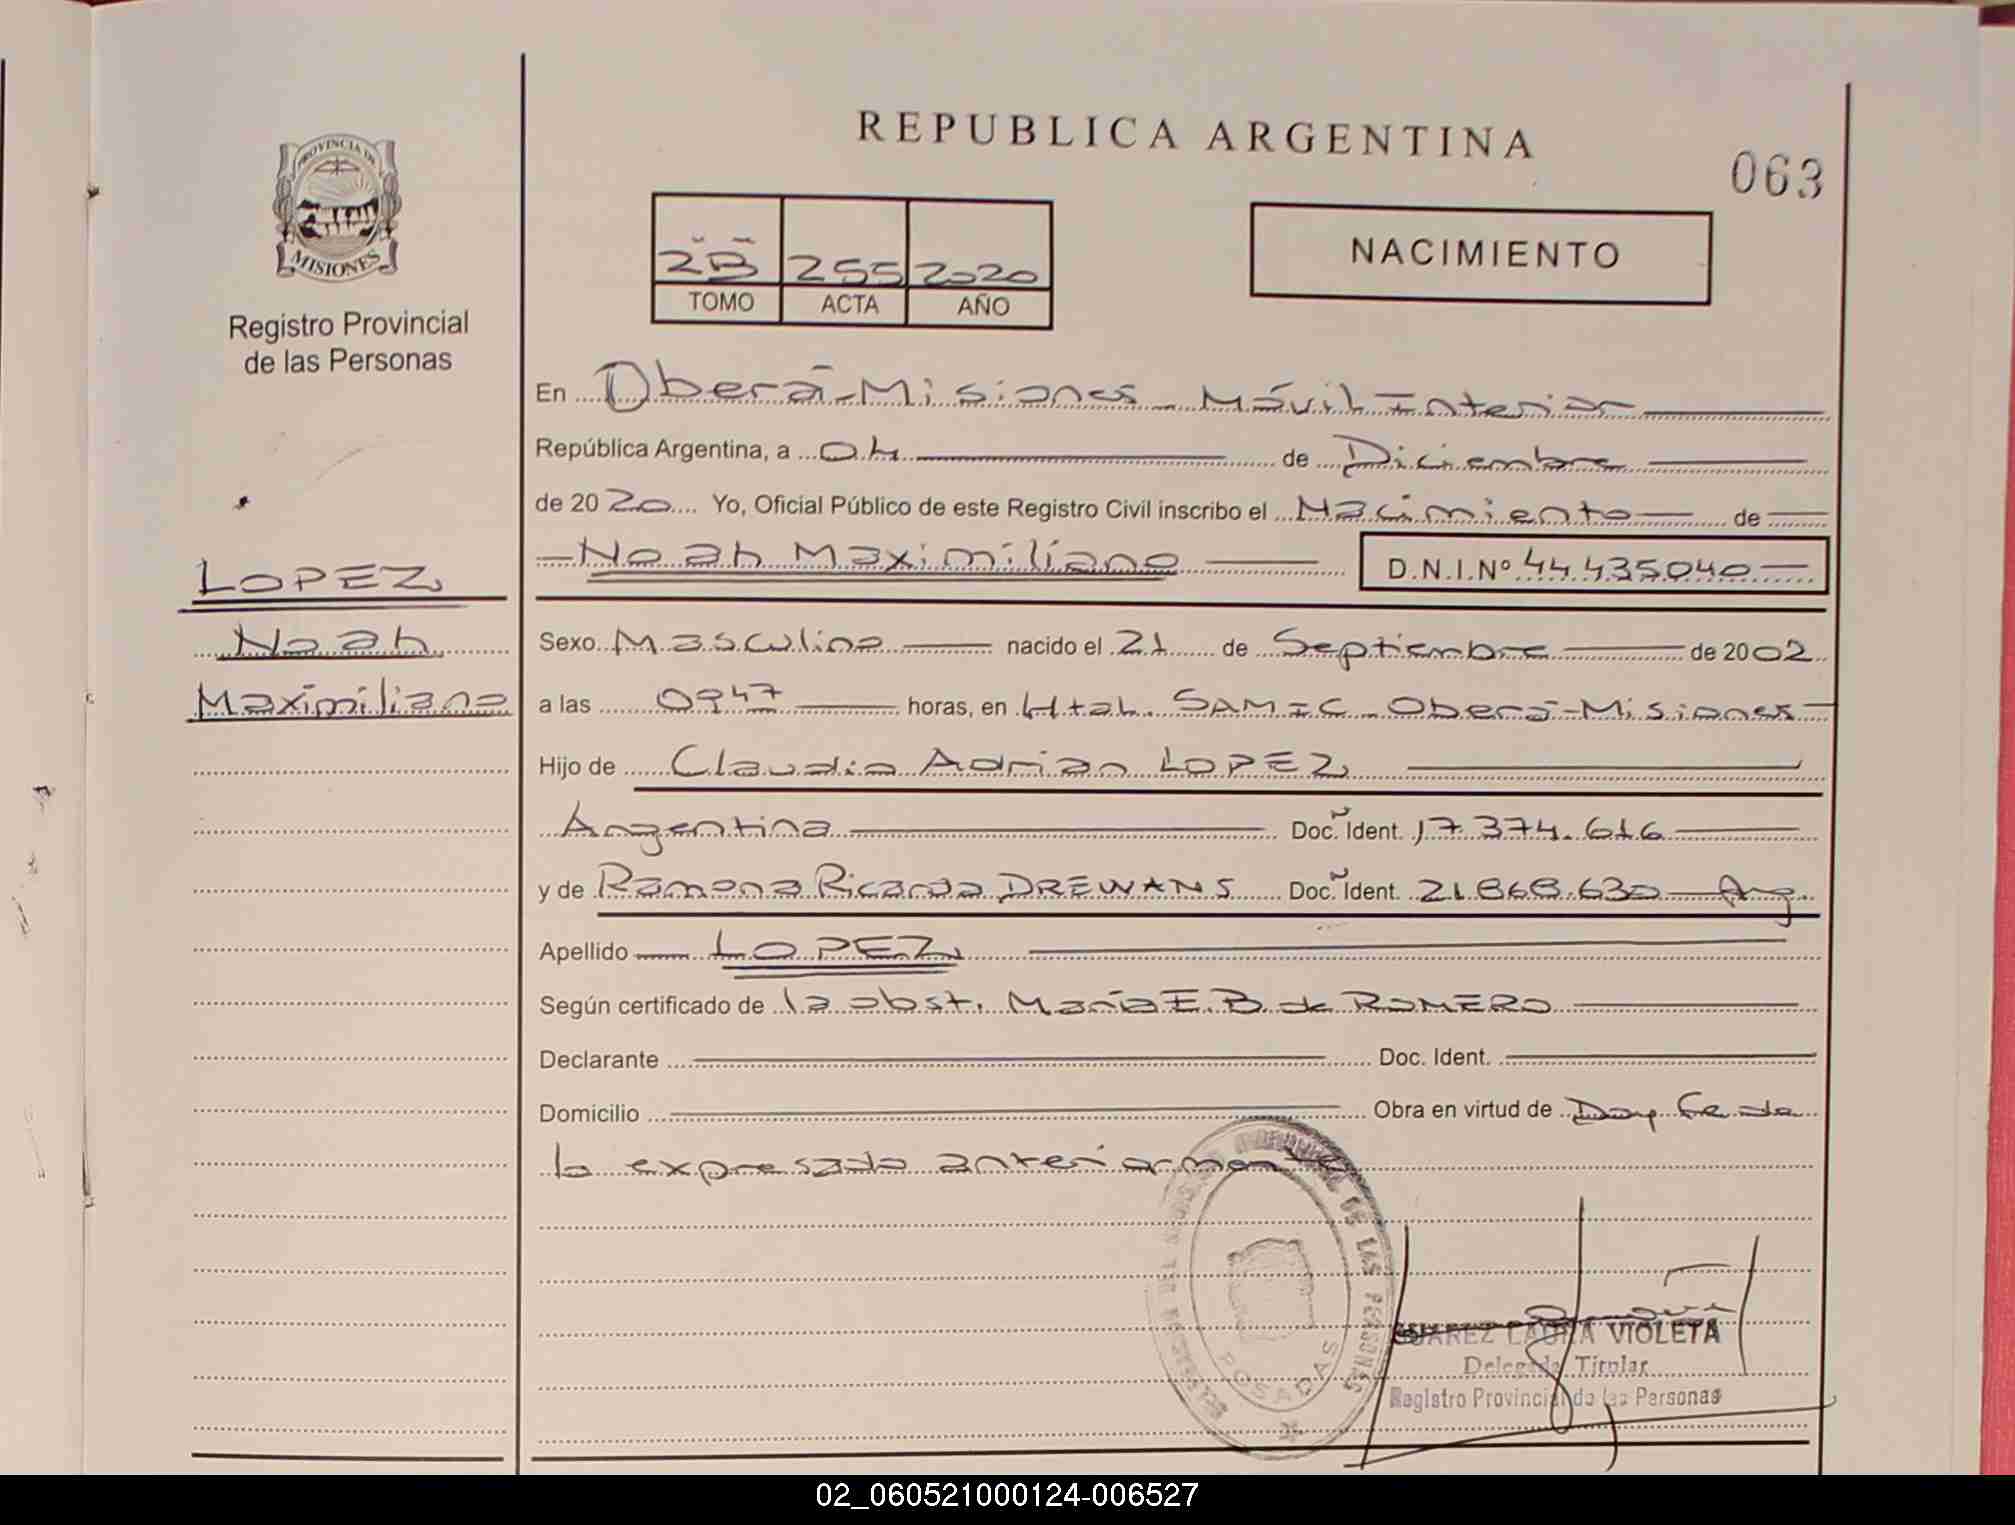 REPUBLICA ARGENTINA
063
PROVINCIA DE
MISIONES
Registro Provincial
de las Personas
2B 255 2020
TOMO ACTA AÑO
NACIMIENTO
En Oberá-Misiones - Móvil Interior
República Argentina, a 04 de Diciembre
de 2020 Yo, Oficial Público de este Registro Civil inscribo el Nacimiento de
Noah Maximiliano D.N.I.Nº 44.435040
LOPEZ
Noah
Maximiliano
Sexo Masculino nacido el 21 de Septiembre de 2002
a las 0947 horas, en Htal. SAMIC - Oberá-Misiones
Hijo de Claudio Adrian LOPEZ
Argentina Doc. Ident. 17.374.616
y de Ramona Ricarda DREWANS Doc. Ident. 21.868.630 Arg.
Apellido LOPEZ
Según certificado de la obst. María E. B. de ROMERO
Declarante Doc. Ident.
Domicilio Obra en virtud de Doy Fe de
lo expresado anteriormente
PROVINCIAL DE LAS PERSONAS
POSADAS
SUAREZ LAURA VIOLETA
Delegada Titular
Registro Provincial de las Personas
02_060521000124-006527